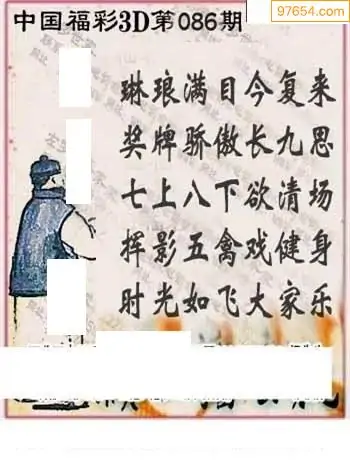 97654.com
中国福彩3D第086期
琳琅满目今复来
奖牌骄傲长九思
七上八下欲清场
挥影五禽戏健身
时光如飞大家乐